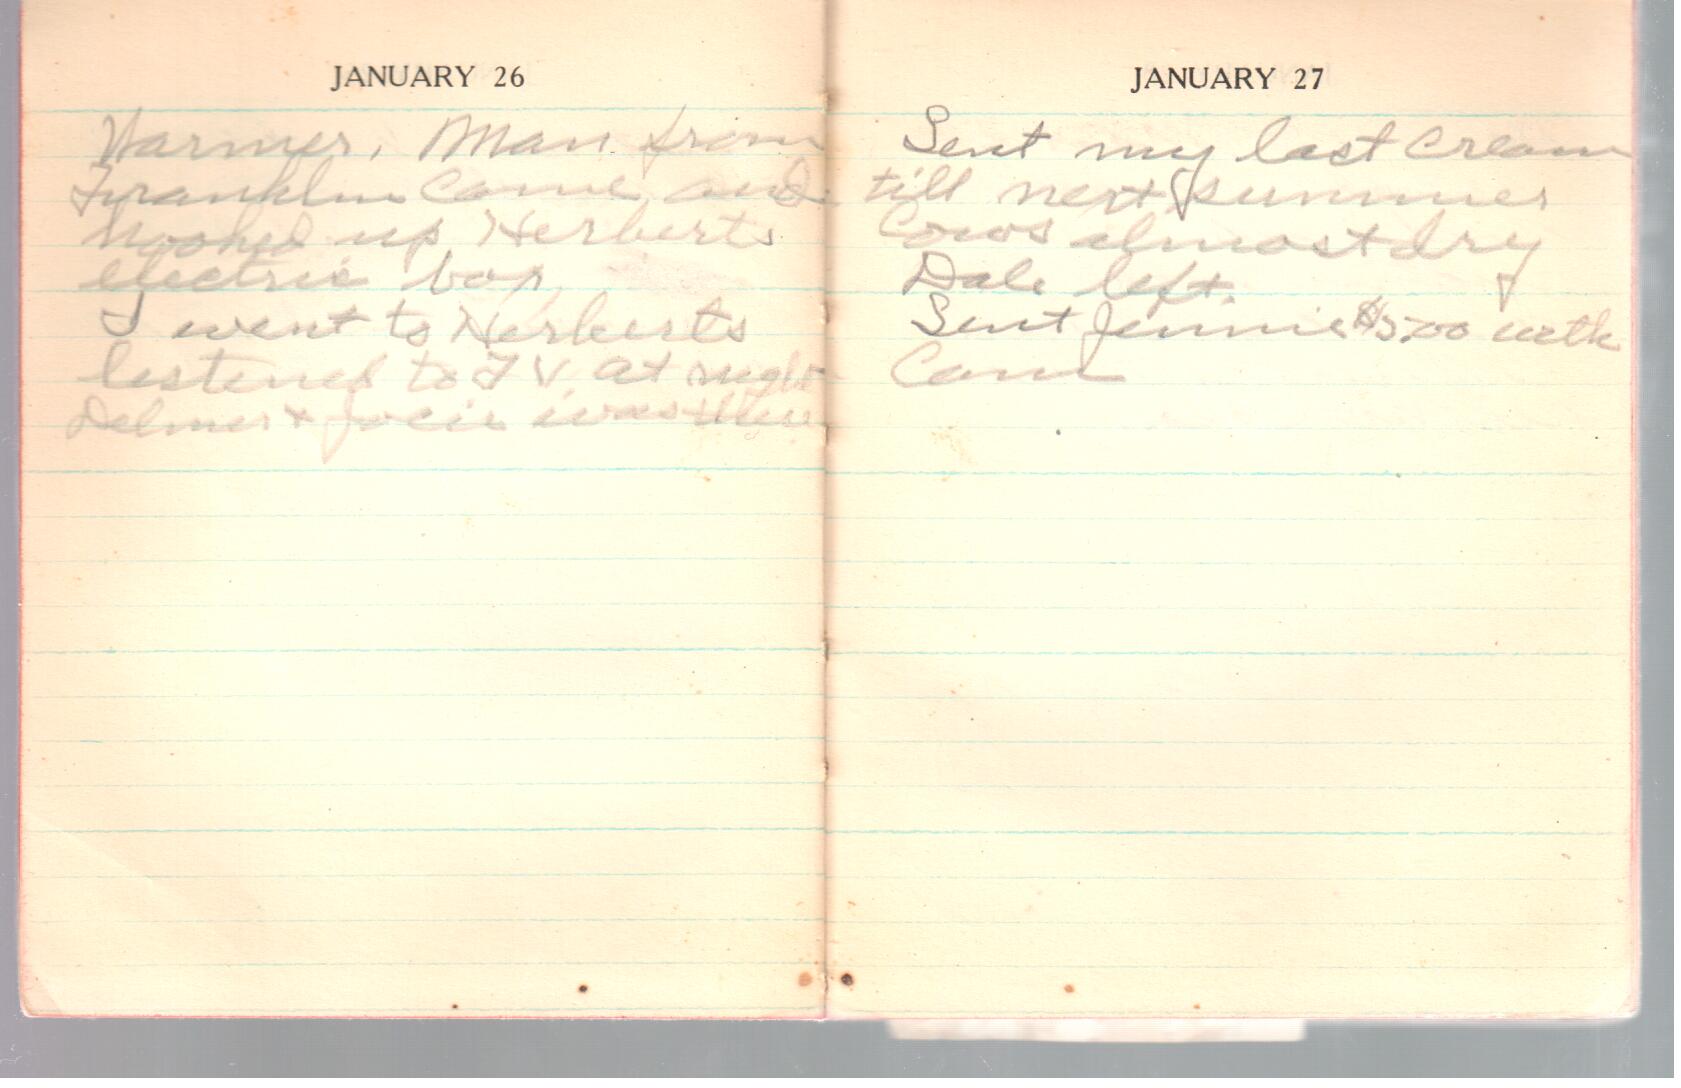 JANUARY 26
Warmer. Man from
Franklin came and
hooked up Herberts
electric box
I went to Herberts
listened to T V. at night
Delmer + was there
JANUARY 27
Sent my last cream
till next summer
Cows almost dry
Dale left.
Sent Jennie $5.00 with